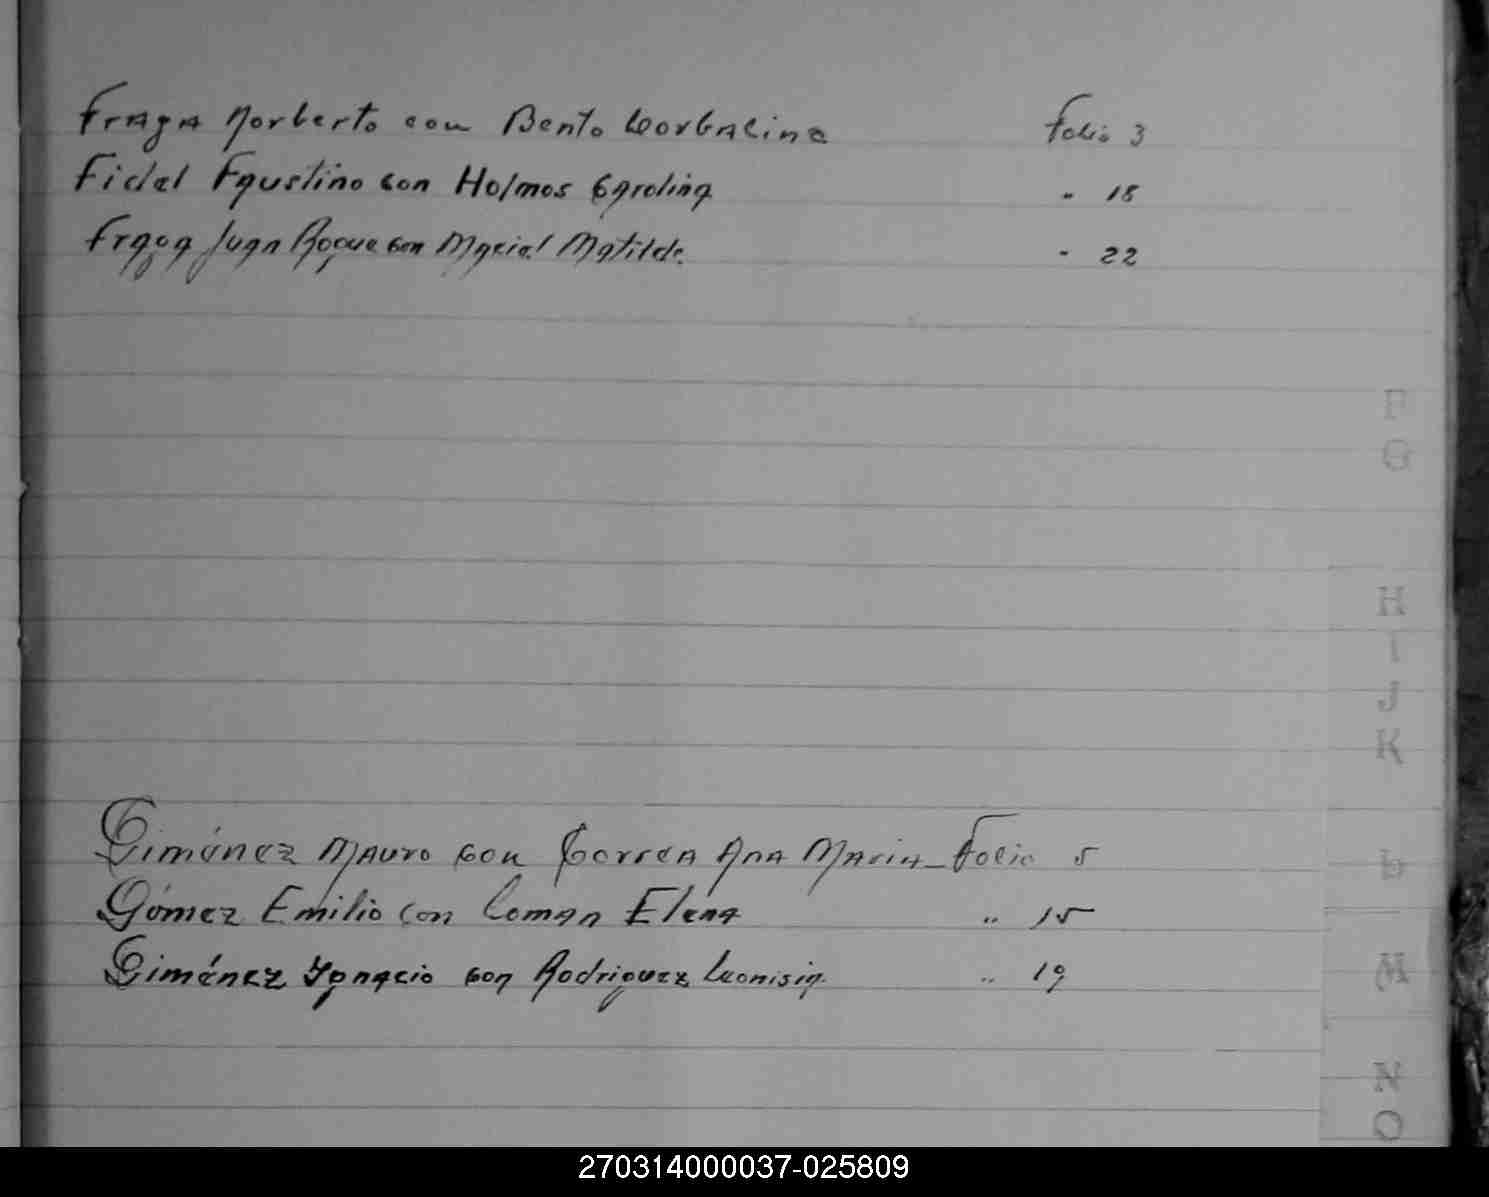 Fraga Norberto con Bento Corbalina Folio 3
Fidel Faustino con Holmos Carolina " 18
Fraga Juan Roque con Marcial Matilde " 22
F
G
H
I
J
K
Giménez Mauro con Correa Ana Maria - Folio 5
L
Gómez Emilio con Coman Elena " 15
Giménez Ignacio con Rodriguez Leonisia " 19
M
N
O
270314000037-025809